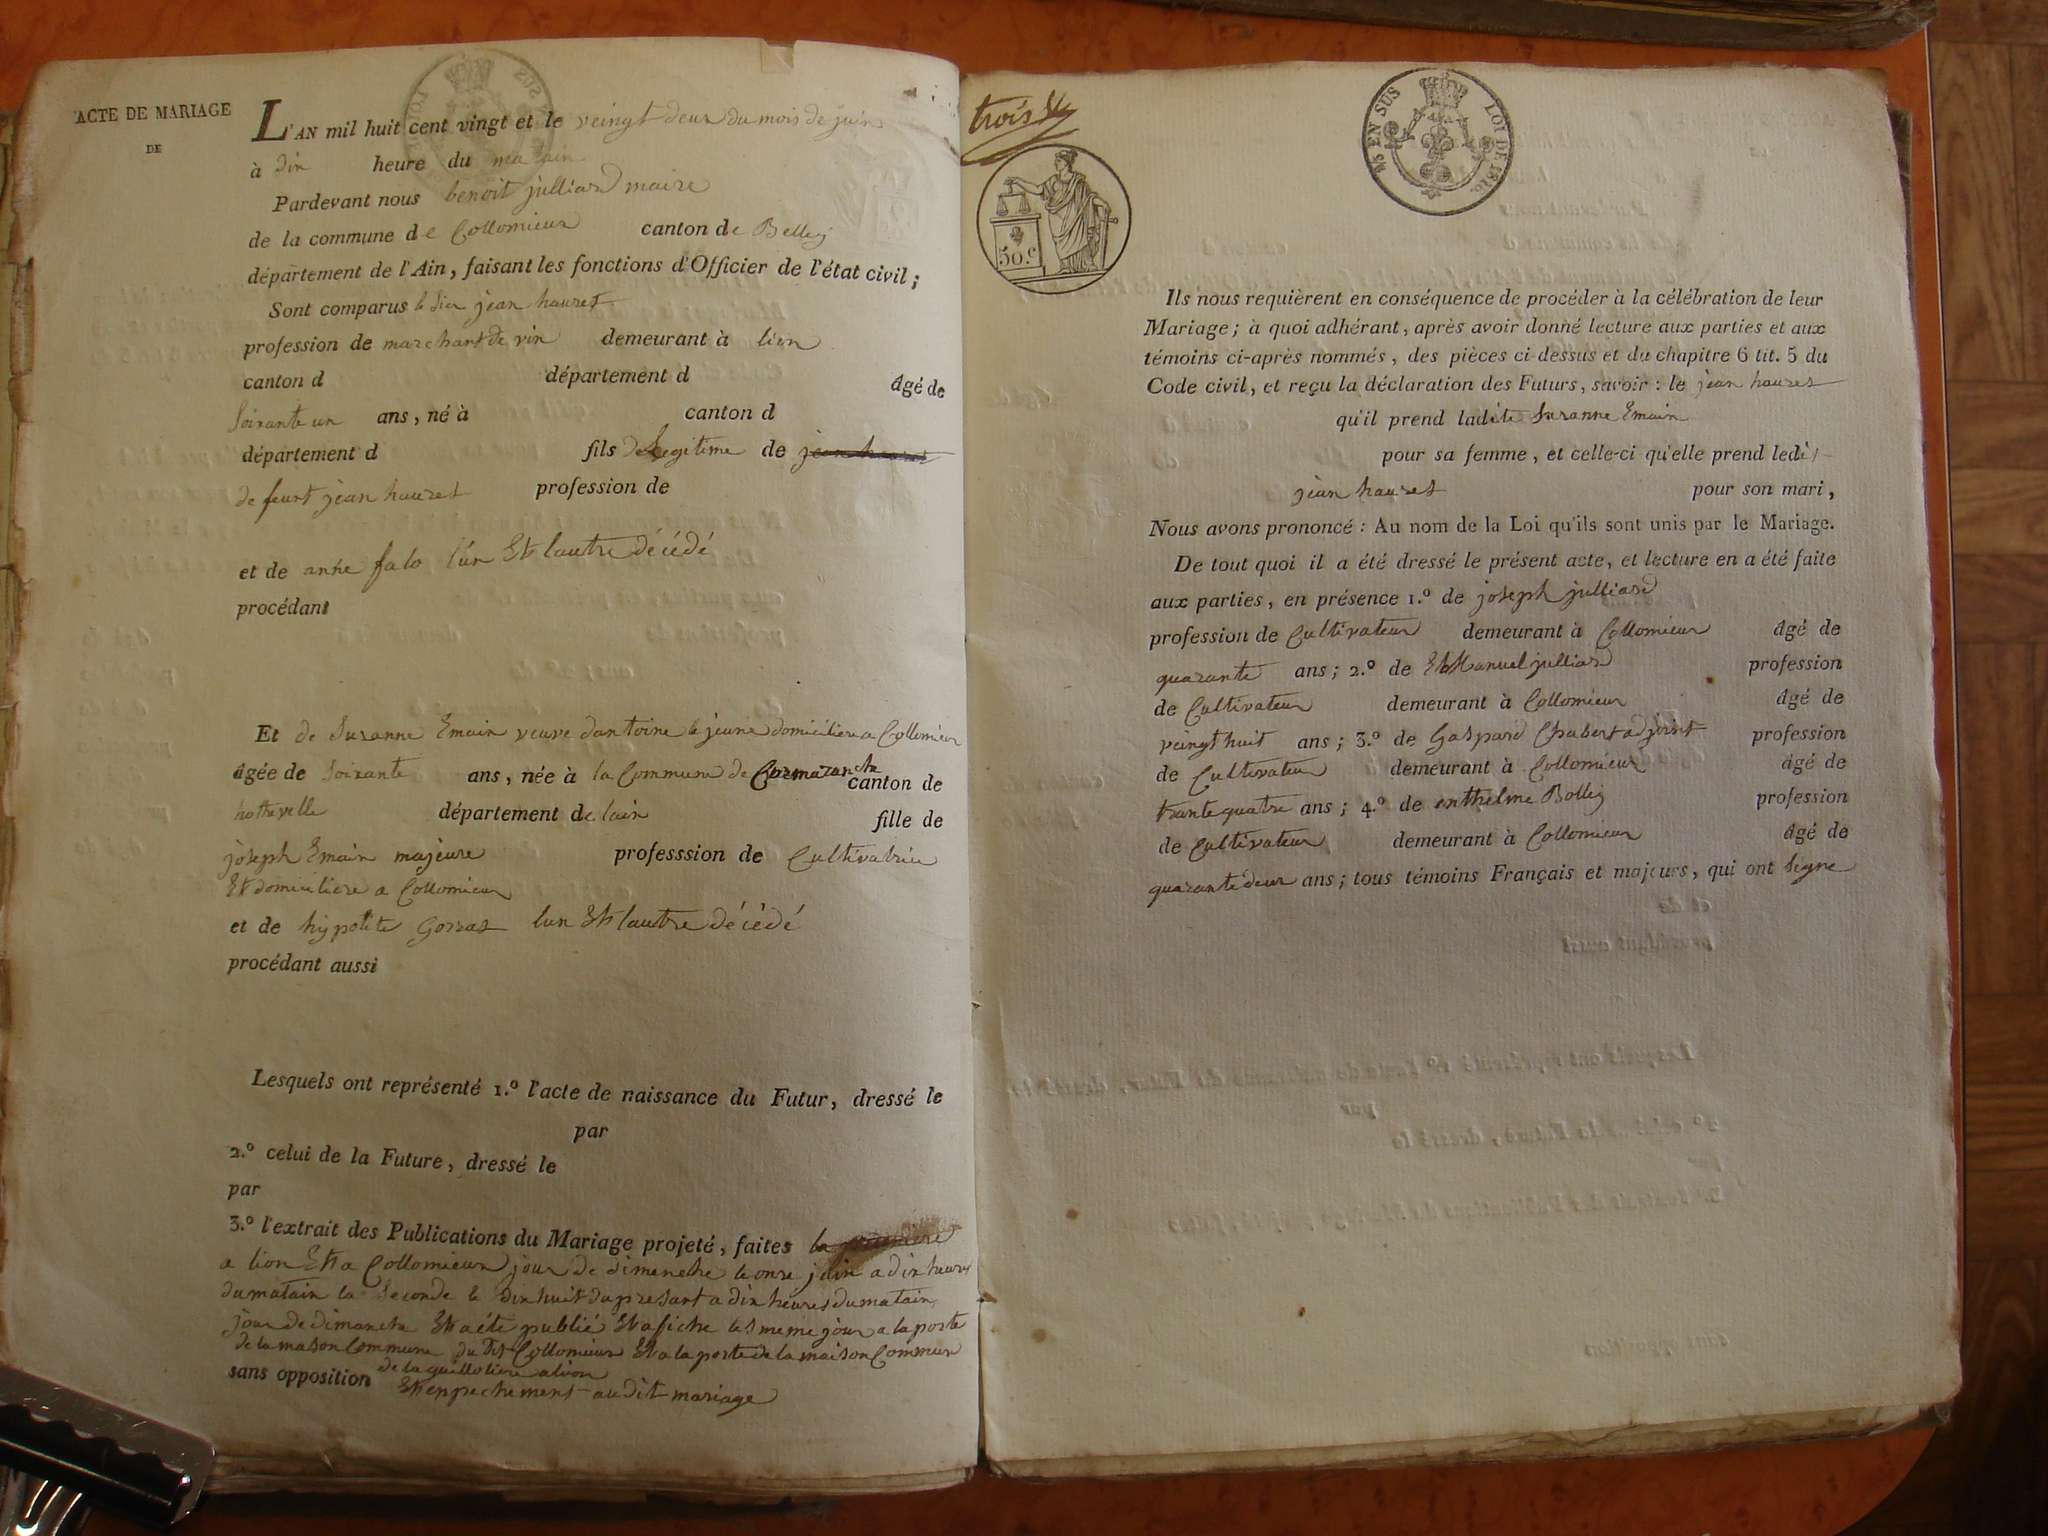 ACTE DE MARIAGE
DE
L'AN mil huit cent vingt et le veingt deux du mois de juin
à dix heure du matain
Pardevant nous benoit julliard maire
de la commune de Collomieux canton de Belley
département de l'Ain, faisant les fonctions d'Officier de l'état civil;
Sont comparus le sieur jean hauret
profession de marchant de vin demeurant à lion
canton d département d âgé de
soixante un ans, né à canton d
département d fils legitime de jean hauret
de feu jean hauret profession de
et de anne falo l'un Et lautre décédé
procédant
Et de Suzanne Emain veuve dantoine le jeune domicilière a Collomieux
âgée de soixante ans, née à la Commune de Cormaranche canton de
hotteville département de lain fille de
joseph Emain majeure professsion de Cultivatrice
Et domicilière a Collomieux
et de hypolite Gorras lun Et lautre décédé
procédant aussi
Lesquels ont représenté 1.º l'acte de naissance du Futur, dressé le
par
2.º celui de la Future, dressé le
par
3.º l'extrait des Publications du Mariage projeté, faites la première
a lion Et a Collomieux jour de dimenche le onze juin a dix heures
du matain la seconde le dix huit du presant a dix heures du matain
jour de dimanche Et a été publié Et afiché les meme jour a la porte
de la maison Commune du dit Collomieux Et a la porte de la maison Commune
de la guillotiere a lion
sans opposition Et enppechement au dit mariage
trois
50.c
EN SUS
LOI DE 1816
Ils nous requièrent en conséquence de procéder à la célébration de leur
Mariage; à quoi adhérant, après avoir donné lecture aux parties et aux
témoins ci-après nommés, des pièces ci dessus et du chapitre 6 tit. 5 du
Code civil, et reçu la déclaration des Futurs, savoir: le jean hauret
qu'il prend ladite Suzanne Emain
pour sa femme, et celle-ci qu'elle prend ledit
jean hauret pour son mari,
Nous avons prononcé: Au nom de la Loi qu'ils sont unis par le Mariage.
De tout quoi il a été dressé le présent acte, et lecture en a été faite
aux parties, en présence 1.º de joseph julliard
profession de Cultivateur demeurant à Collomieux âgé de
quarante ans; 2.º de Emanuel julliard profession
de Cultivateur demeurant à Collomieux âgé de
veingt huit ans; 3.º de Gaspard Chabert adjoint profession
de Cultivateur demeurant à Collomieux âgé de
trante quatre ans; 4.º de enthelme Bolley profession
de Cultivateur demeurant à Collomieux âgé de
quarante deux ans; tous témoins Français et majeurs, qui ont signe